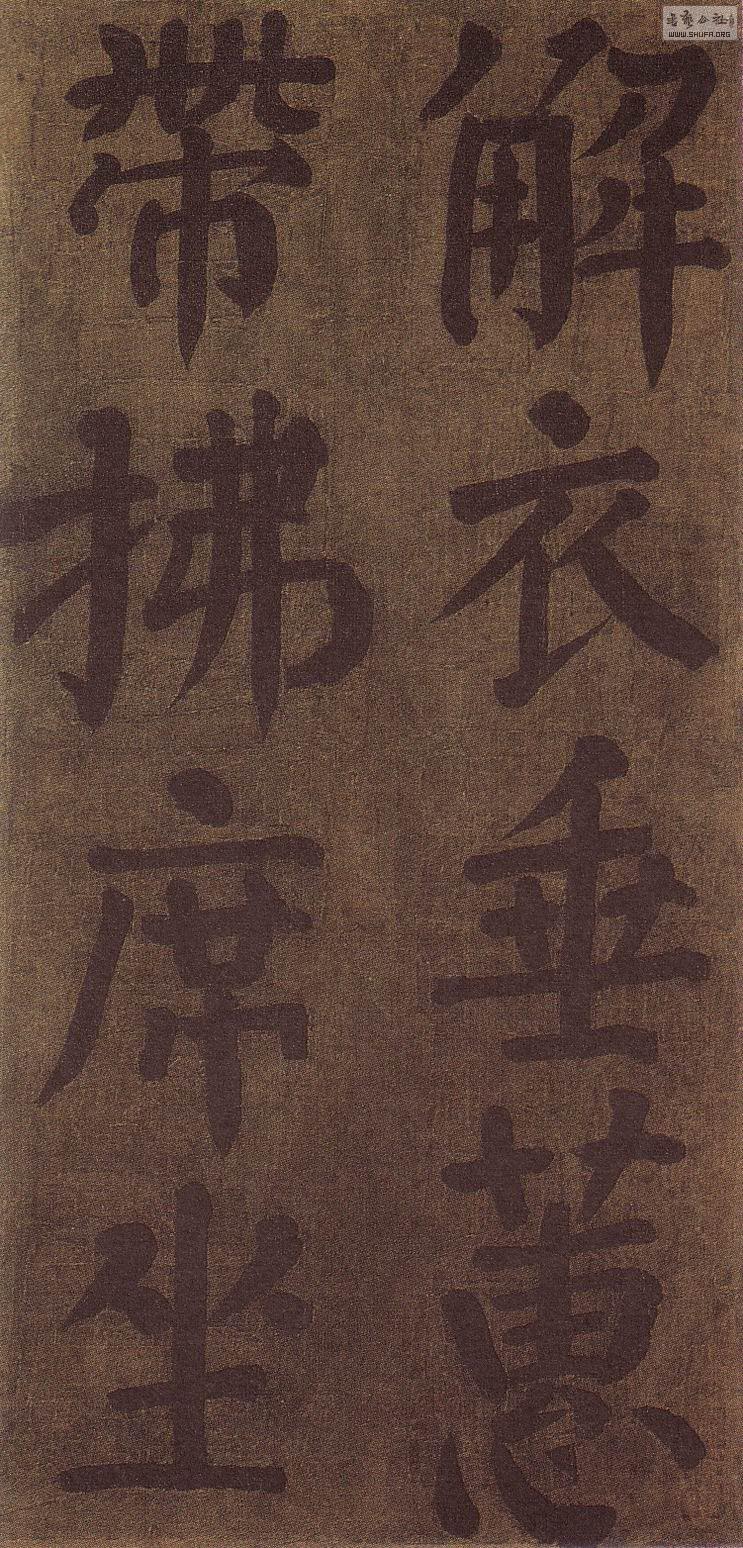 解衣垂蕙
帶拂席坐
公社
WWW.SHUFA.ORG